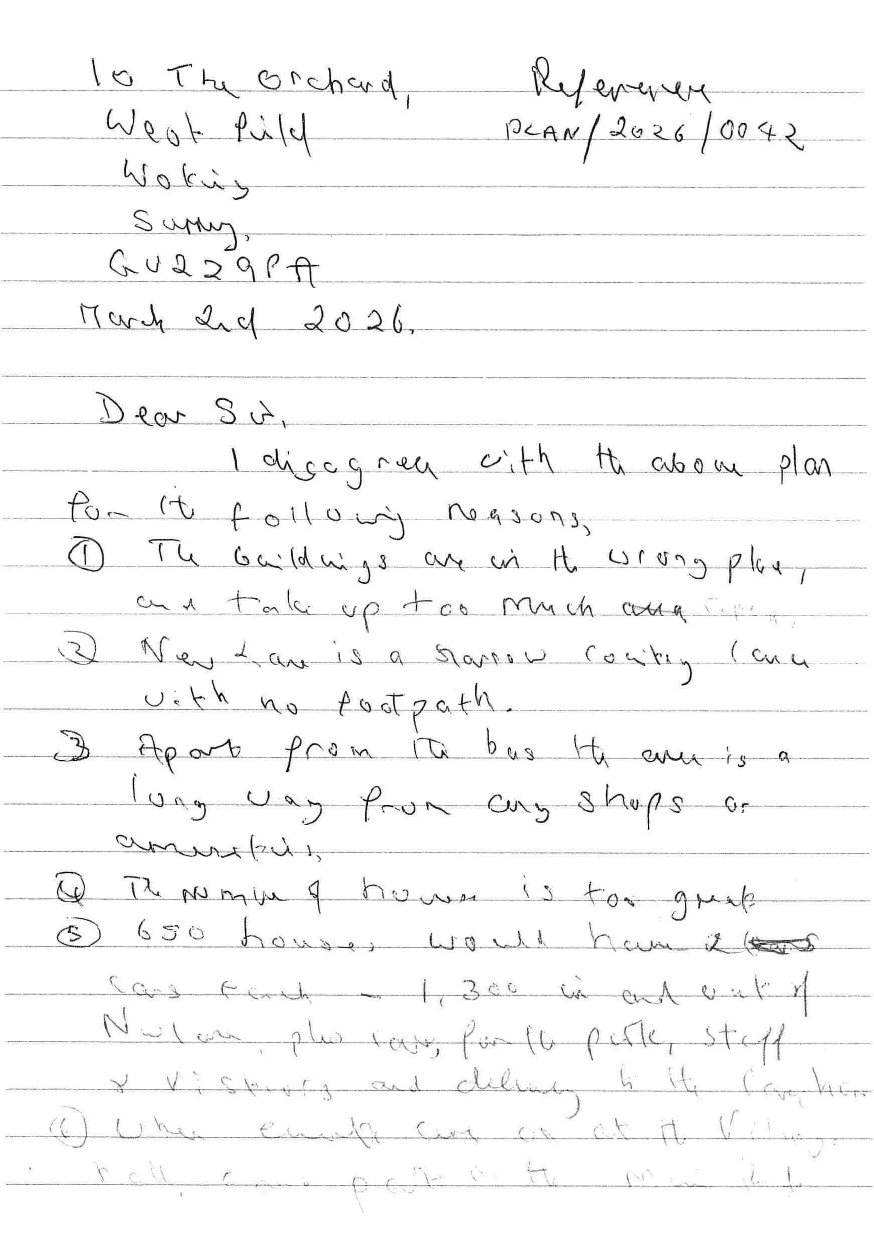 10 The Orchard,
Reference
West field
PLAN/2026/0042
Woking
Surrey,
GU22 9PA
March 2nd 2026.
Dear Sir,
I disagree with the above plan
for the following reasons,
① The buildings are in the wrong place,
and take up too much
② New Lane is a narrow country lane
with no footpath.
③ Apart from the bus the area is a
long way from any shops or
amenities,
④ The number of houses is too great
⑤ 650 houses would have 2
cars each - 1,300 in and out of
New lane, plus cars, for the park, staff
& visitors and delivery to the
⑥ When events are on at the Village
hall, cars park in the